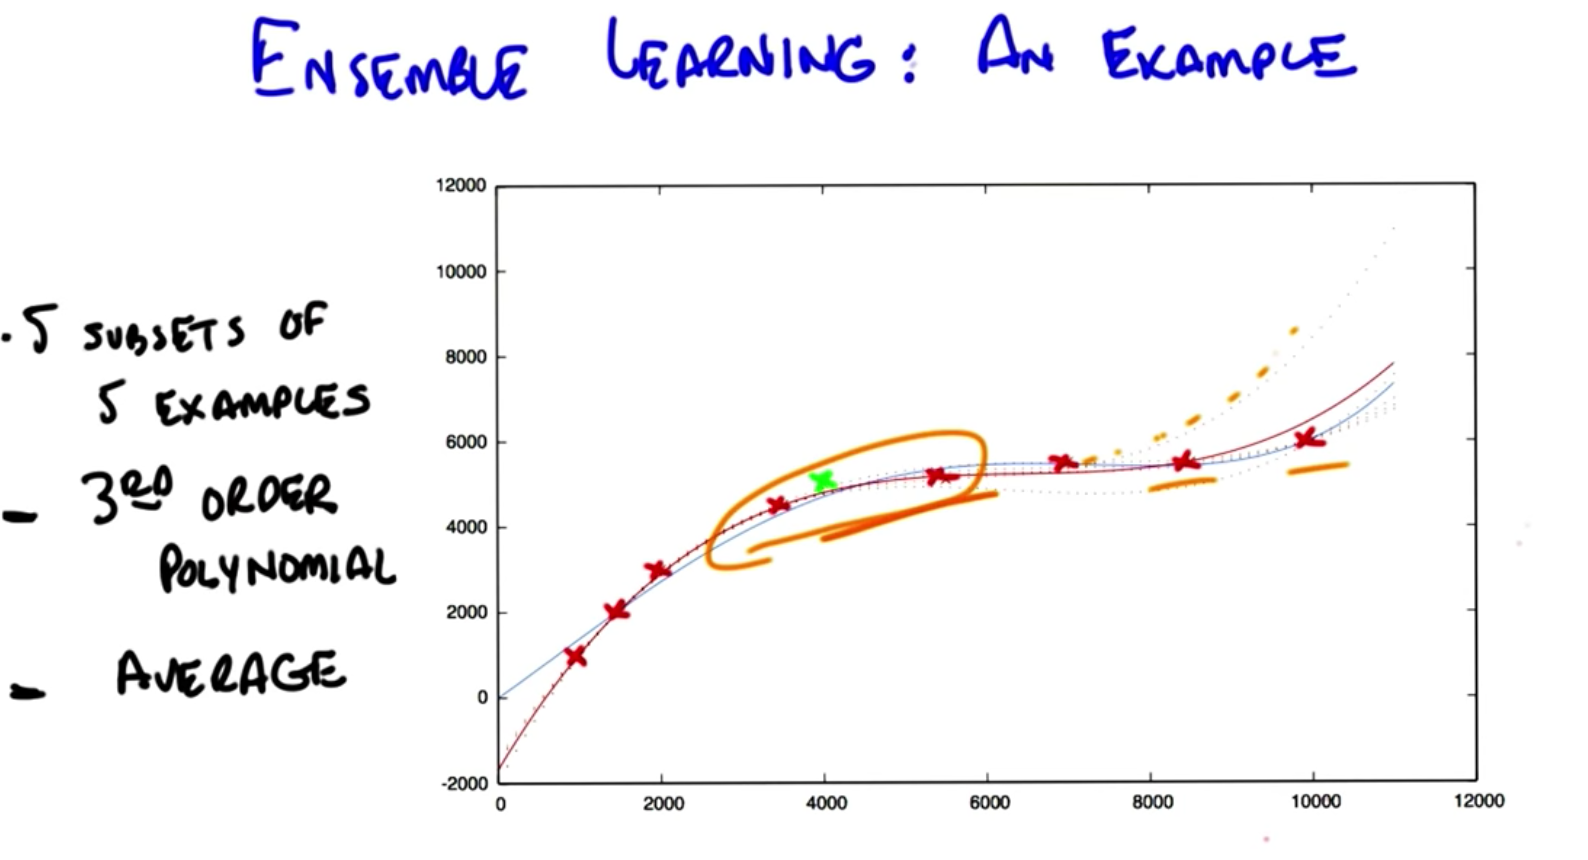 ENSEMBLE LEARNING: AN EXAMPLE
.5 SUBSETS OF
5 EXAMPLES
- 3RD ORDER
POLYNOMIAL
- AVERAGE
12000
10000
8000
6000
4000
2000
0
-2000
0 2000 4000 6000 8000 10000 12000